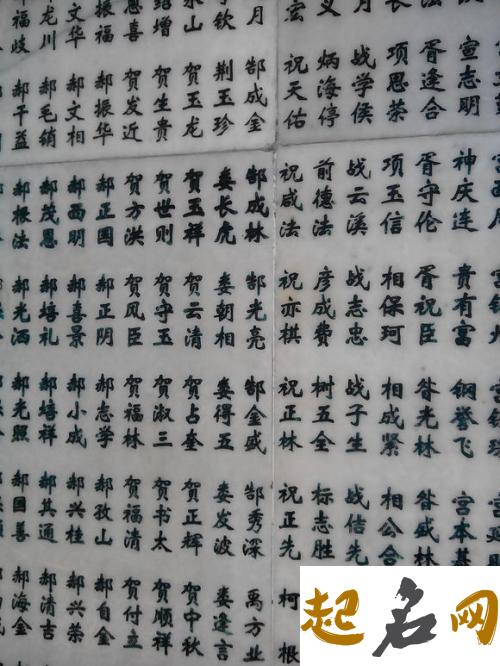 宣志明
神庆连
贵有富
钢誉飞
宫本基
胥逢合
胥守伦
胥祝臣
昝光林
昝盛林
长
项思荣
项玉信
相保珂
相成紧
相公合
月
战学侯
战云溪
战志忠
战子生
战佶先
义
炳海停
前德法
彦成费
树五全
标志胜
宏
祝天佑
祝咸法
祝亦棋
祝正林
祝正先
柯 根
月
郜成金
郜成林
郜光亮
郜金盛
郜秀深
禹方业
子钦
荆玉珍
娄长虎
娄朝相
娄得五
娄发波
娄逢言
永山
贺玉龙
贺玉祥
贺云清
贺占奎
贺正辉
贺中秋
绍增
贺生贵
贺世则
贺守玉
贺淑三
贺书太
贺顺祥
恩喜
贺发近
贺方洪
贺风臣
贺福林
贺福清
贺付立
振福
郝振华
郝正国
郝正阴
郝志学
郝孜山
郝自金
文华
郝文相
郝西明
郝喜景
郝小成
郝兴桂
郝兴荣
龙川
郝毛销
郝茂恩
郝培礼
郝培祥
郝其通
郝清吉
福岐
郝干益
郝根法
郝光洒
郝光照
郝国善
郝海金
起名网